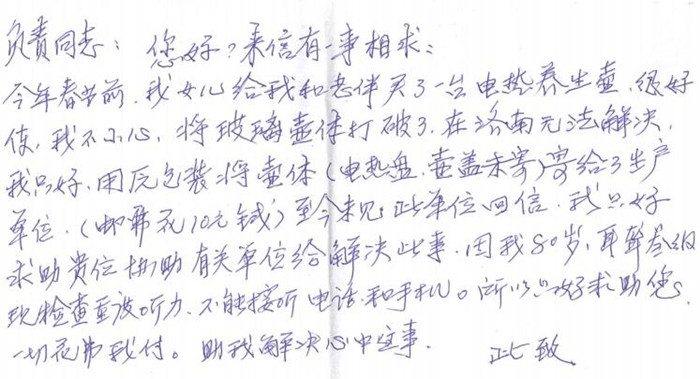 负责同志：您好？来信有一事相求：
今年春节前，我女儿给我和老伴买了一台电热养生壶，很好
使，我不小心，将玻璃壶体打破了，在济南无法解决，
我只好，用原包装将壶体（电热盘、壶盖未寄）寄给了生产
单位，（邮费花10元钱）至今未见此单位回信，我只好
求助贵位协助有关单位给解决此事，因我80岁，耳聋叁级
现检查重度听力，不能接听电话和手机。所以只好求助您，
一切花费我付。助我解决心中这事，此致